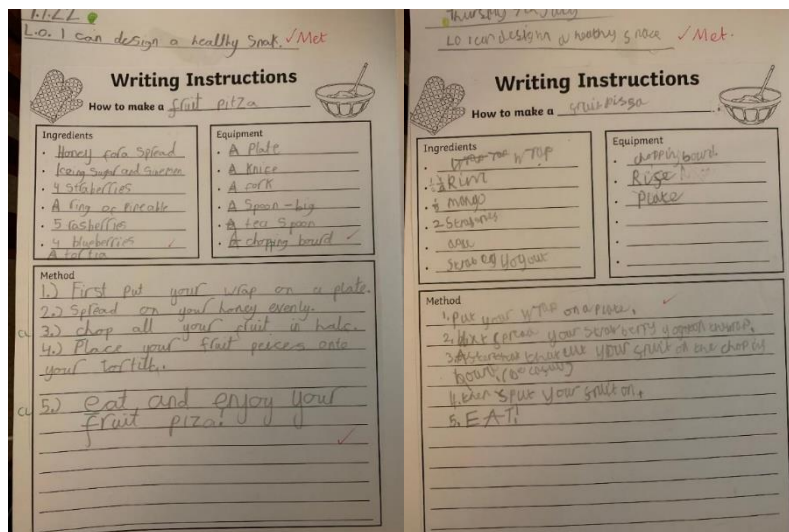 L.o. I can design a healthy Snak. ✓Met
Writing Instructions
How to make a fruit pitza
Ingredients
• Honey for a Spread
• Iceing Sugar and
• 4 Straberries
• A ring of Pineable
• 5 rasberries
• 4 blueberries
A tortia
Equipment
• A Plate
• A Knice
• A cork
• A Spoon-big
• A tea Spoon
• A chopping bourd
Method
1.) First Put your wrap on a plate.
2.) Spread on your honey evenly.
3.) chop all your fruit in halc.
4.) Place your fruit peices onto
your tortilla.
5.) eat and enjoy your
fruit piza!
Thursday
LO I can design a healthy snace ✓Met.
Writing Instructions
How to make a fruit pissa
Ingredients
• wrap
•
• ½ mango
• 2
•
• yogout
Equipment
• chopping bourd
•
• Plate
Method
1. Put your wrap on a plate.
2. Next spread your strawberry yogout
3. that cut your fruit on the chopin
bourd.
4. then put your fruit on.
5. EAT!